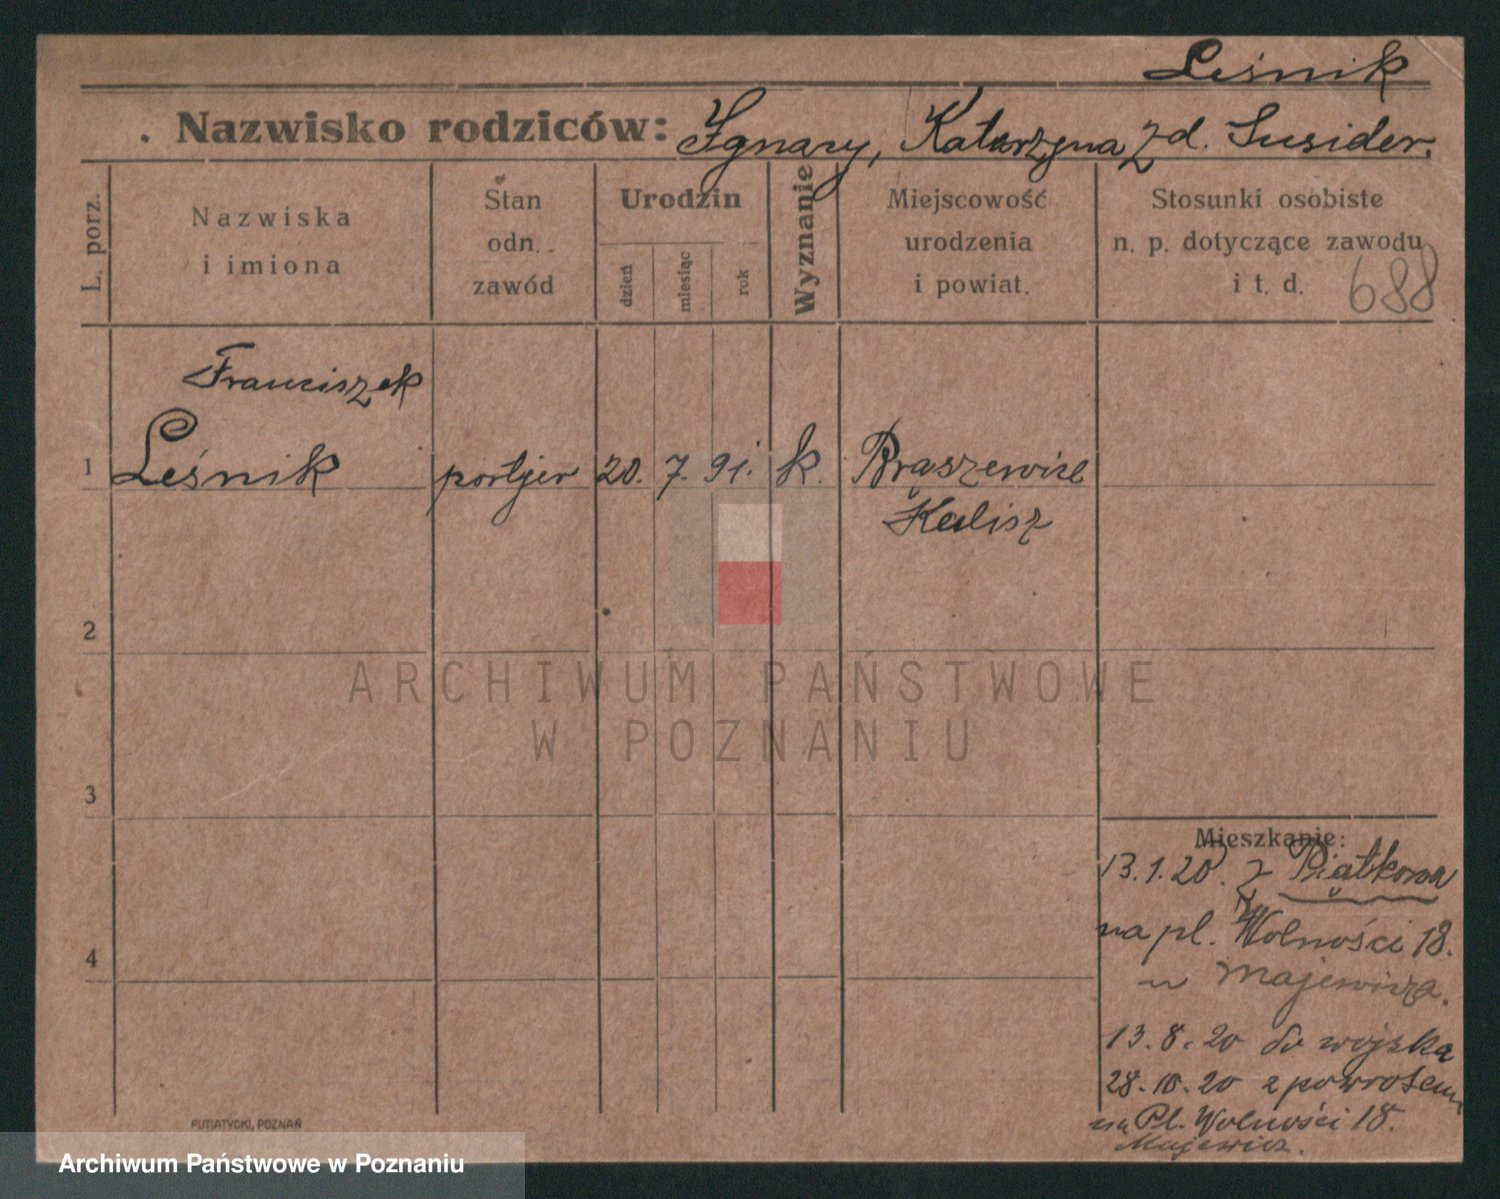 Leśnik
Nazwisko rodziców: Ignacy, Katarzyna z d. Susider.
L. porz.
Nazwiska
i imiona
Stan
odn.
zawód
Urodzin
dzień
miesiąc
rok
Wyznanie
Miejscowość
urodzenia
i powiat.
Stosunki osobiste
n. p. dotyczące zawodu
i t. d. 688
Franciszek
1 Leśnik portjer 20. 7. 91. k. Braszewice
Kalisz
2
ARCHIWUM PAŃSTWOWE
W POZNANIU
3
Mieszkanie:
13.1.20. z Piątkowa
na pl. Wolności 18.
u Majewicza.
4
13.8.20 do wojska
28.10.20 z powrotem
na Pl. Wolności 18.
Majewicz.
PUTIATYCKI, POZNAŃ
Archiwum Państwowe w Poznaniu